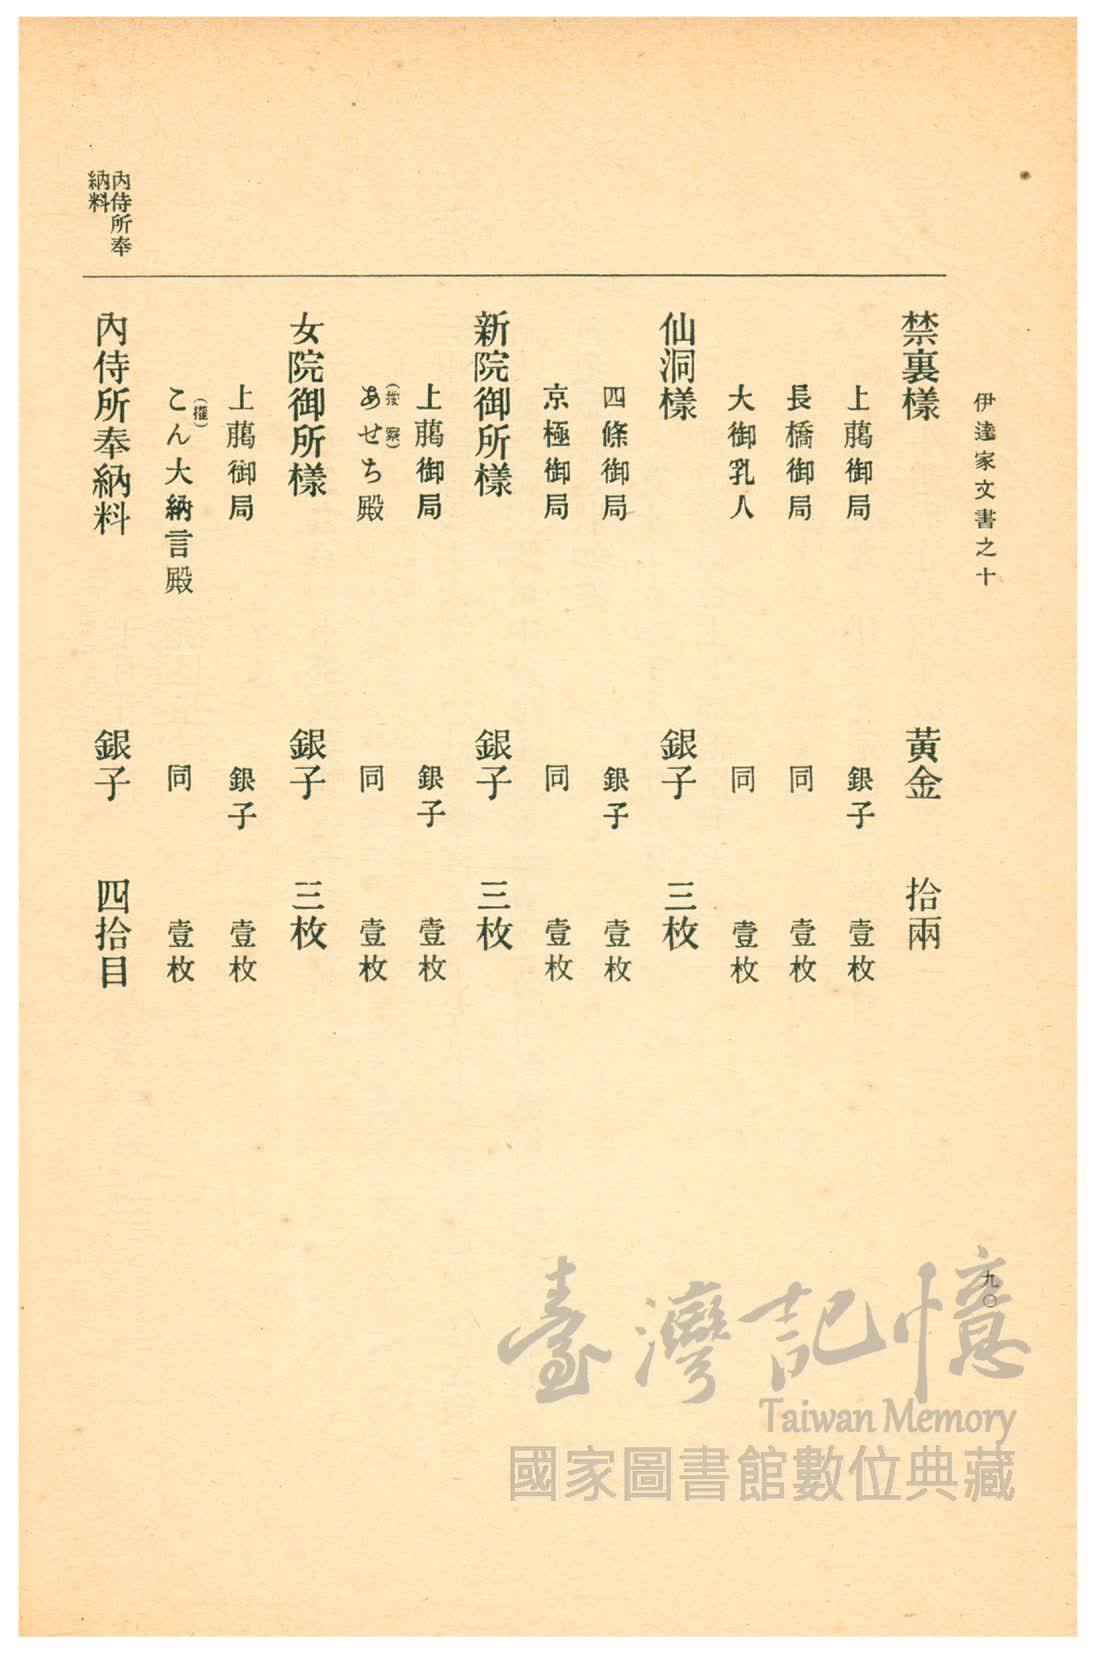 伊達家文書之十
禁裏樣　黃金　拾兩
上﨟御局　銀子　壹枚
長橋御局　同　壹枚
大御乳人　同　壹枚
仙洞樣　銀子　三枚
四條御局　銀子　壹枚
京極御局　同　壹枚
新院御所樣　銀子　三枚
上﨟御局　銀子　壹枚
(按察)
あせち殿　同　壹枚
女院御所樣　銀子　三枚
上﨟御局　銀子　壹枚
(權)
こん大納言殿　同　壹枚
內侍所奉納料　銀子　四拾目
內侍所奉
納料
九〇
臺灣記憶
Taiwan Memory
國家圖書館數位典藏